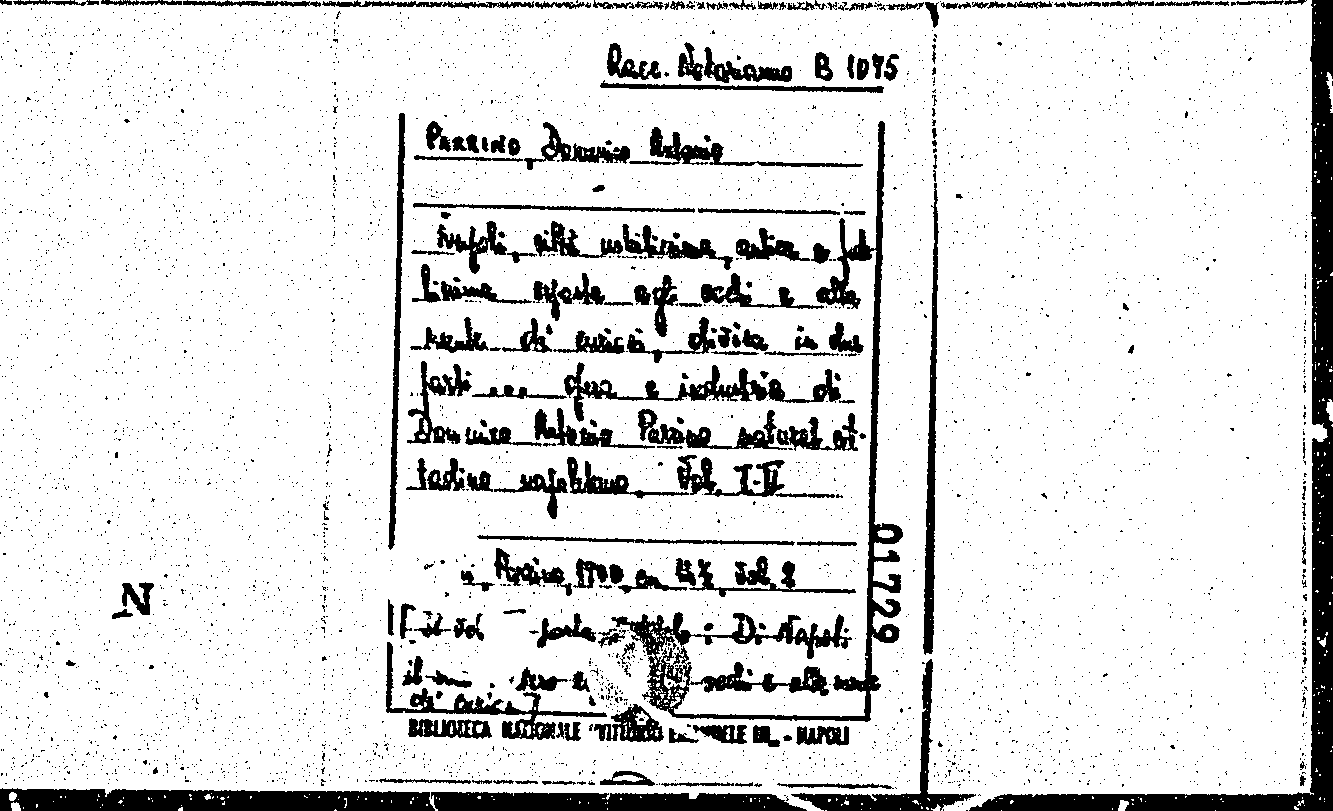 Racc. Notarianno B 1075
PARRINO, Domenico Antonio
Napoli, città nobilissima, antica e fede
lissima esposta agli occhi e alla
mente de' curiosi, divisa in due
parti .... opera e industria di
Domenico Antonio Parrino natural cit-
tadino napoletano. Vol. I-II
Parrino, 1700, vol. 2
[il vol. porta titolo: Di Napoli
il seno occhi e alla mente
de' curiosi]
BIBLIOTECA NAZIONALE "VITTORIO EMANUELE III" - NAPOLI
01729
N